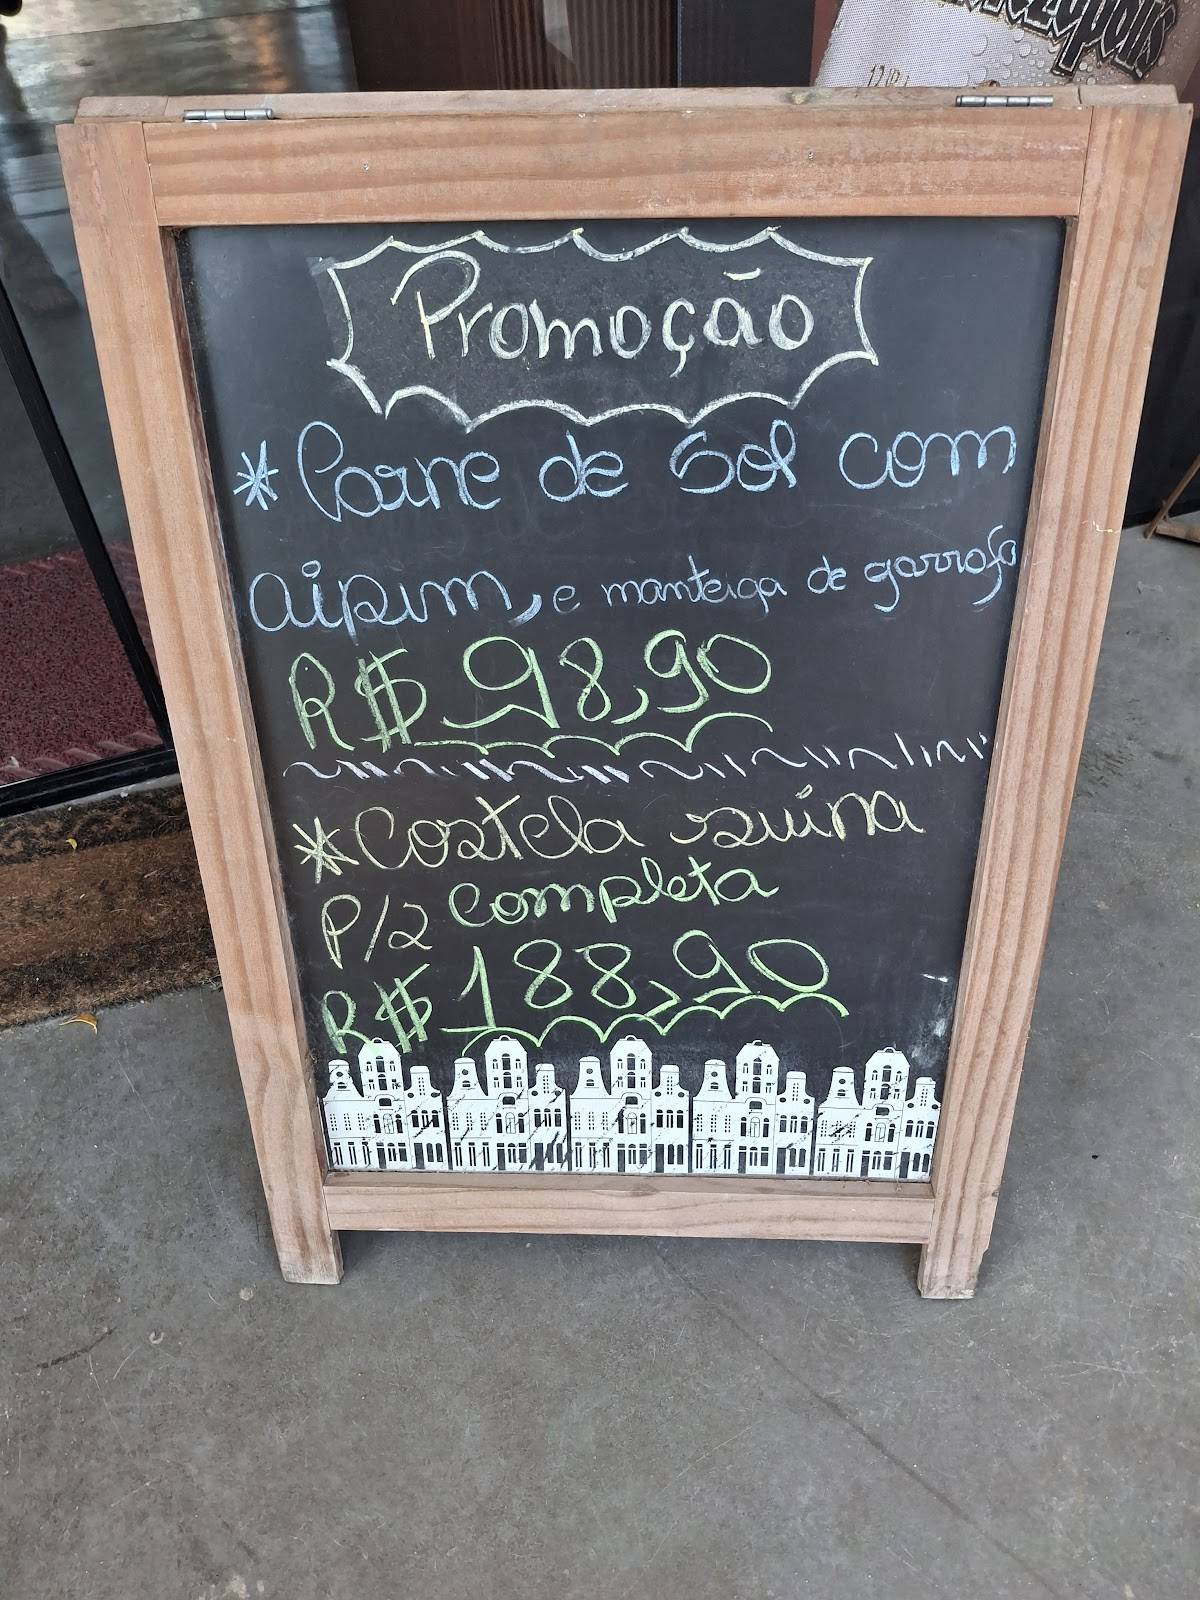 Promoção
* Carne de Sol com
aipim, e manteiga de garrafa
R$ 98,90
* Costela suína
P/2 completa
R$ 188,90